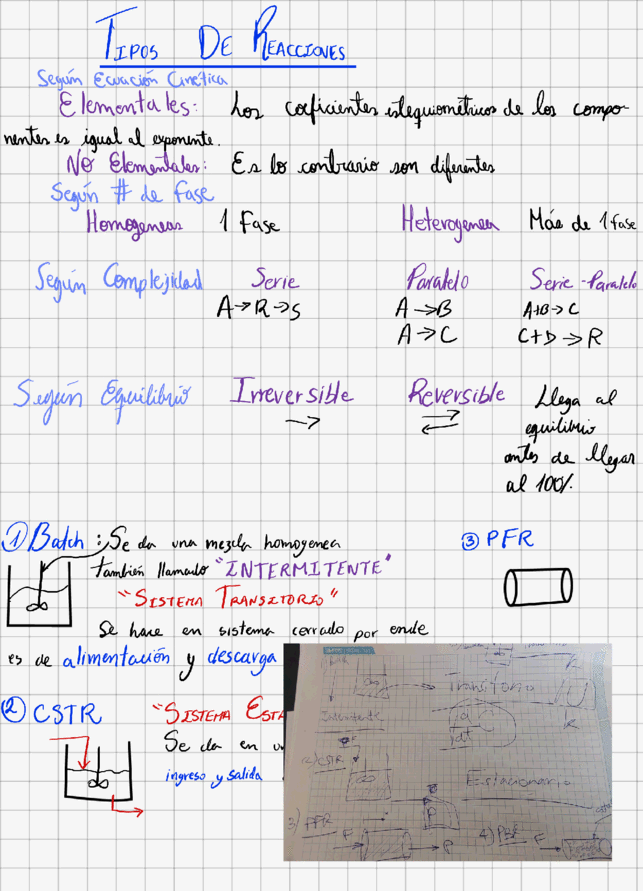 TIPOS DE REACCIONES
Según Ecuación Cinética
Elementales: Los coeficientes estequiométricos de los compo-
nentes es igual al exponente.
No Elementales: Es lo contrario son diferentes
Según # de fase
Homogeneas 1 Fase Heterogenea Más de 1 fase
Según Complejidad Serie Paralelo Serie-Paralelo
A→R→S A→B A+B→C
A→C C+D→R
Según Equilibrio Irreversible Reversible Llega al
→ ⇌ equilibrio
antes de llegar
al 100%.
① Batch: Se da una mezcla homogenea ③ PFR
también llamado "INTERMITENTE"
"SISTEMA TRANSITORIO"
Se hace en sistema cerrado por ende
es de alimentación y descarga
② CSTR "SISTEMA ESTA
Se da en u
ingreso y salida
Transitorio
Intermitente
dt
2) CSTR
Estacionario
3) PFR
F P 4) PBR F